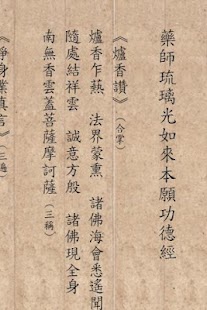 藥師琉璃光如來本願功德經
《爐香讚》(合掌)
爐香乍爇 法界蒙熏 諸佛海會悉遙聞
隨處結祥雲 誠意方殷 諸佛現全身
南無香雲蓋菩薩摩訶薩(三稱)
《淨身業真言》(三遍)